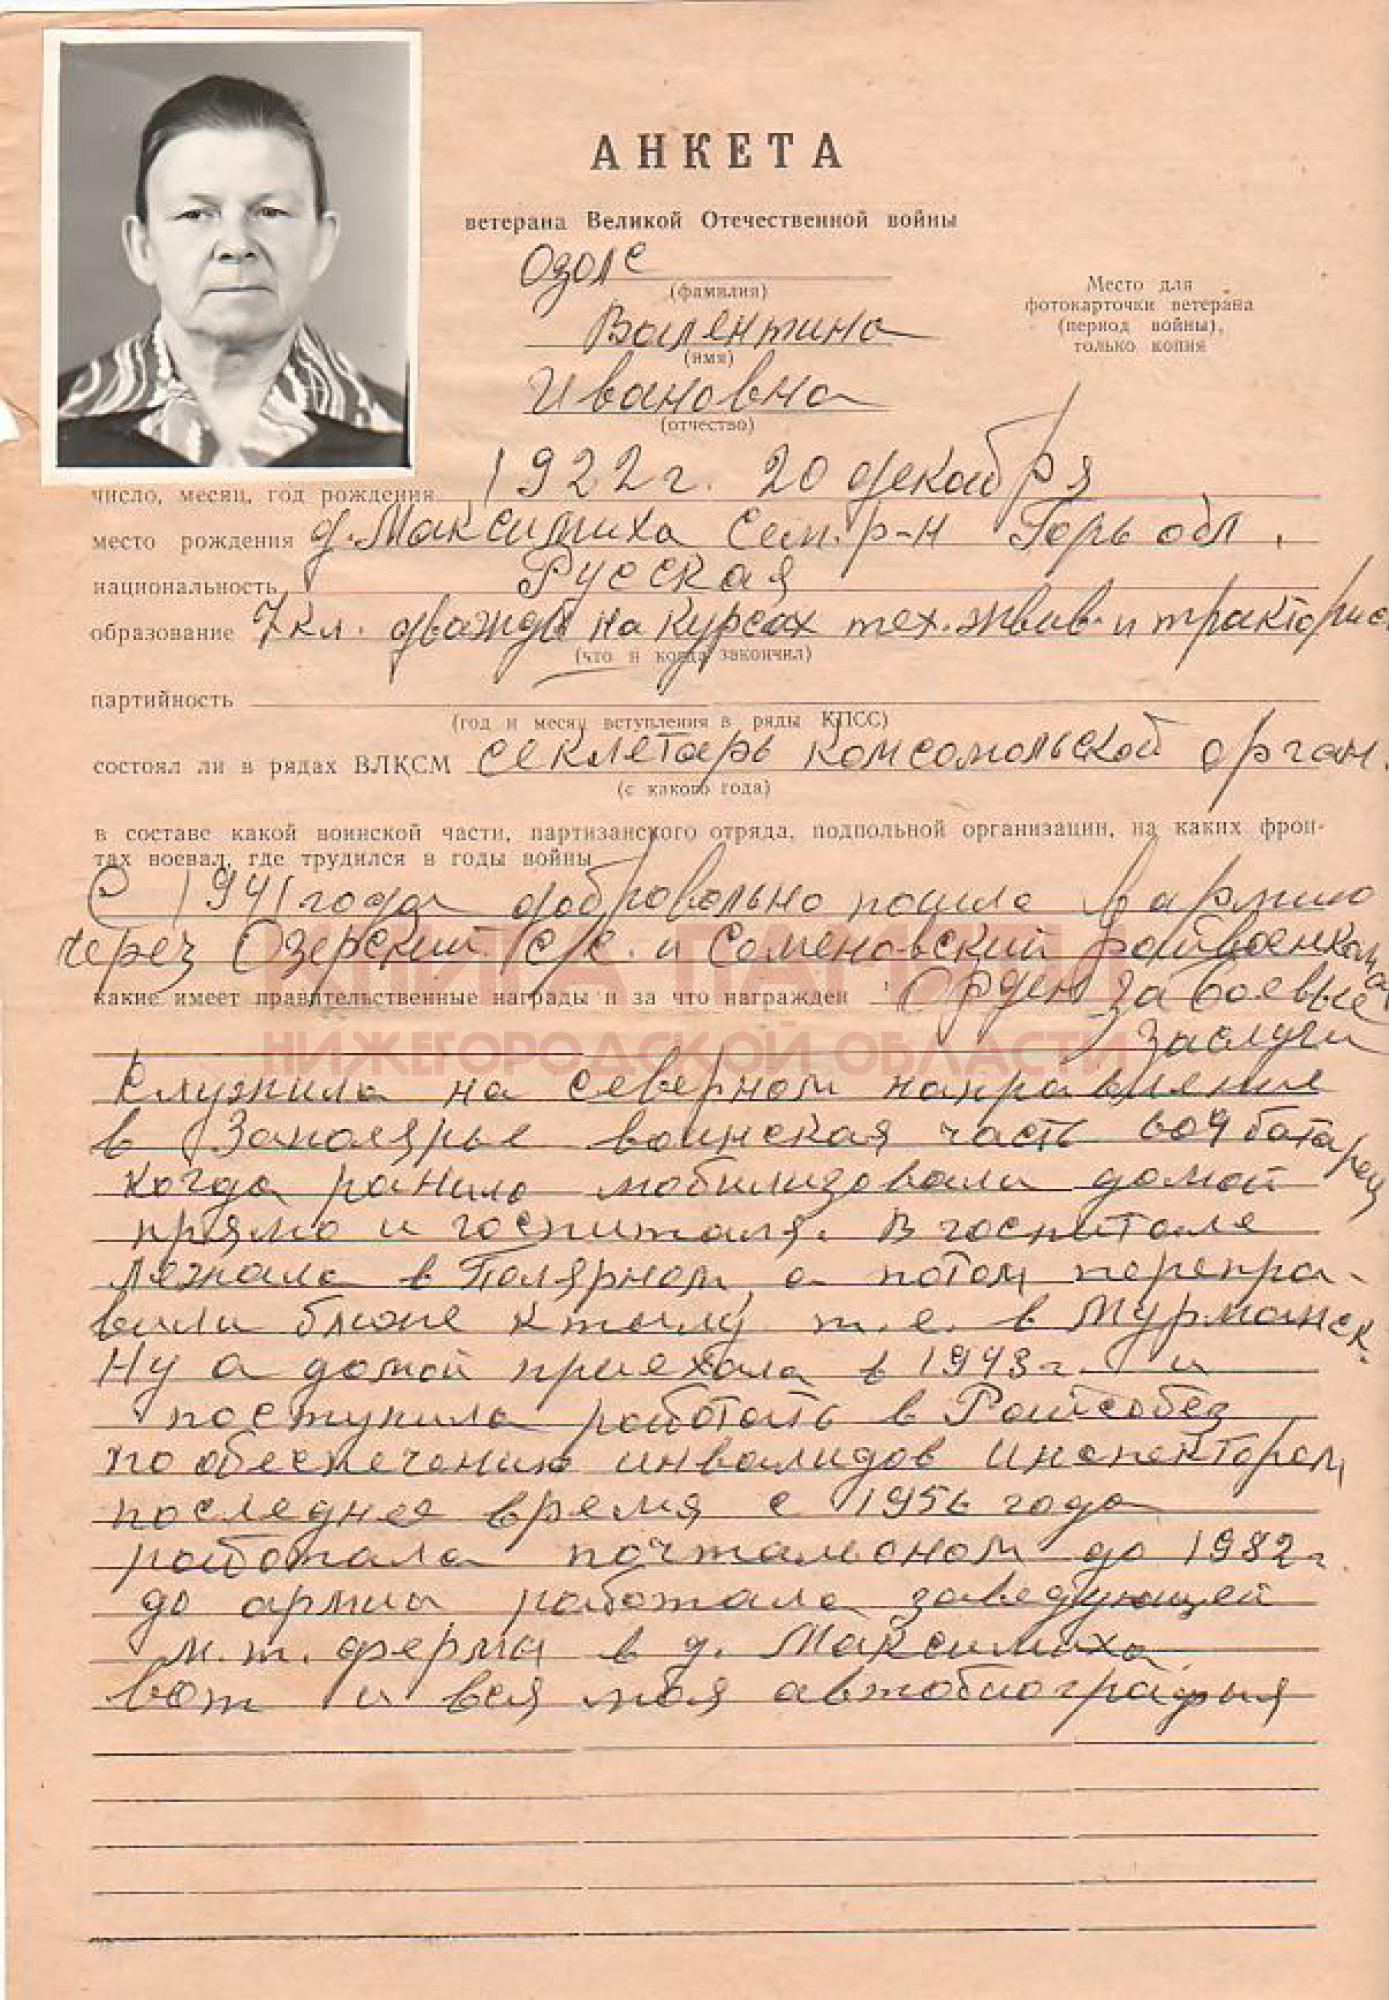 АНКЕТА
ветерана Великой Отечественной войны
Озолс
(фамилия)
Место для
фотокарточки ветерана
(период войны),
только копия
Валентина
(имя)
Ивановна
(отчество)
число, месяц, год рождения 1922 г. 20 декабря
место рождения д. Максимиха Сем. р-н Горь обл.
национальность Русская
образование 7 кл. дважды на курсах тех. живв. и тракторис
(что и когда закончил)
партийность
(год и месяц вступления в ряды КПСС)
состоял ли в рядах ВЛКСМ секлетарь комсомольской орган.
(с какого года)
в составе какой воинской части, партизанского отряда, подпольной организации, на каких фрон-
тах воевал, где трудился в годы войны
С 1941 года добровольно пошла в армию
через Озерский с/с. и Семеновский райвоенкомат
КНИГА ПАМЯТИ
какие имеет правительственные награды и за что награжден Орден за боевые
заслуги
НИЖЕГОРОДСКОЙ ОБЛАСТИ
Служила на северном направление
в Заполярье воинская часть 609 батарея
когда ранило мобилизовали домой
прямо и госпиталя. В госпитале
лежала в Полярном, а потом перепра-
вили ближе к тылу т.е. в Мурманск.
Ну а домой приехала в 1943 г. и
поступила работать в Райсобез
по обеспечению инвалидов инспектором
последнее время с 1956 года
работала почтальоном до 1982 г.
до армии работала заведующей
м.т. ферма в д. Максимиха
вот и вся моя автобиография